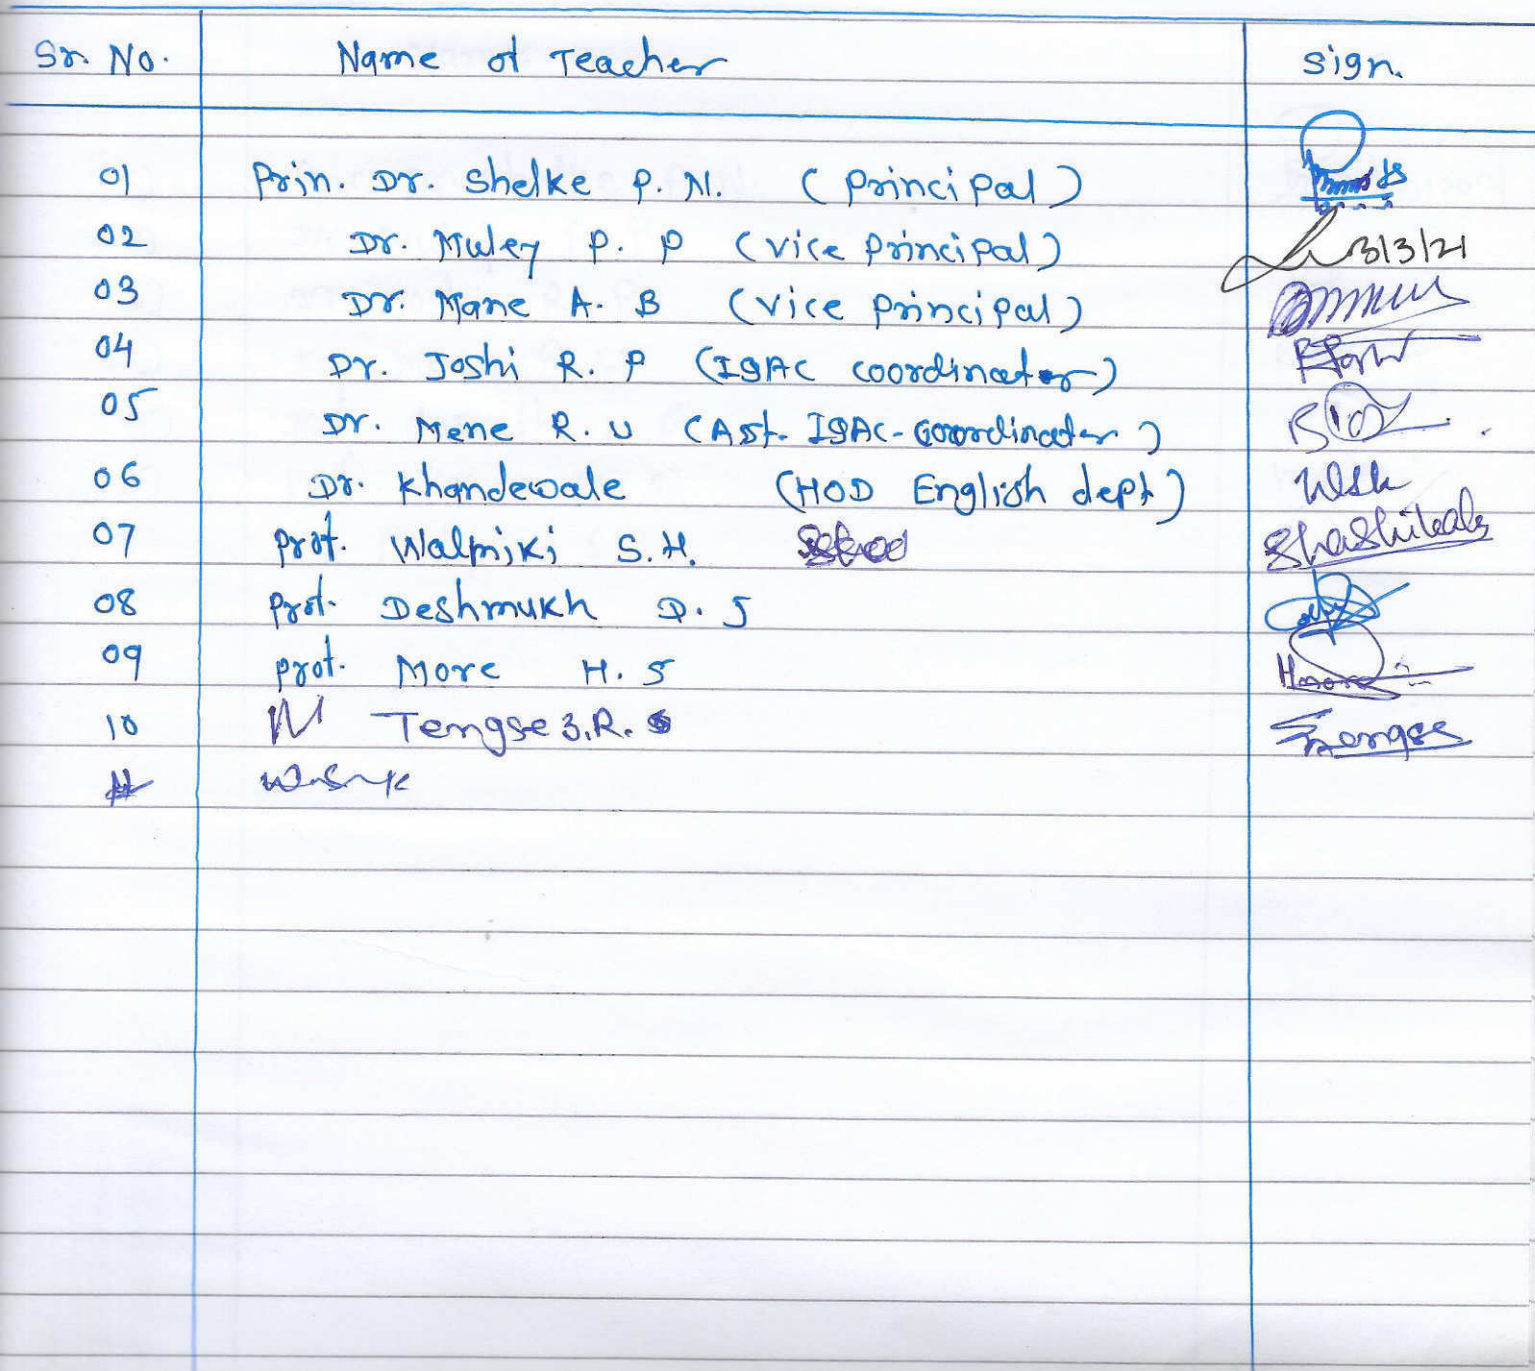 Sr. No. Name of Teacher Sign.
01 Prin. Dr. Shelke P. N. (Principal)
02 Dr. Muley P. P (Vice Principal) 3/3/21
03 Dr. Mane A. B (Vice Principal)
04 Dr. Joshi R. P (IQAC Coordinator)
05 Dr. Mene R. U (Asst. IQAC-Coordinator)
06 Dr. Khandewale (HOD English dept)
07 Prof. Walmiki S.H. Shashikala
08 Prof. Deshmukh D. S
09 Prof. More H. S Hmore
10 Tengse S.R.